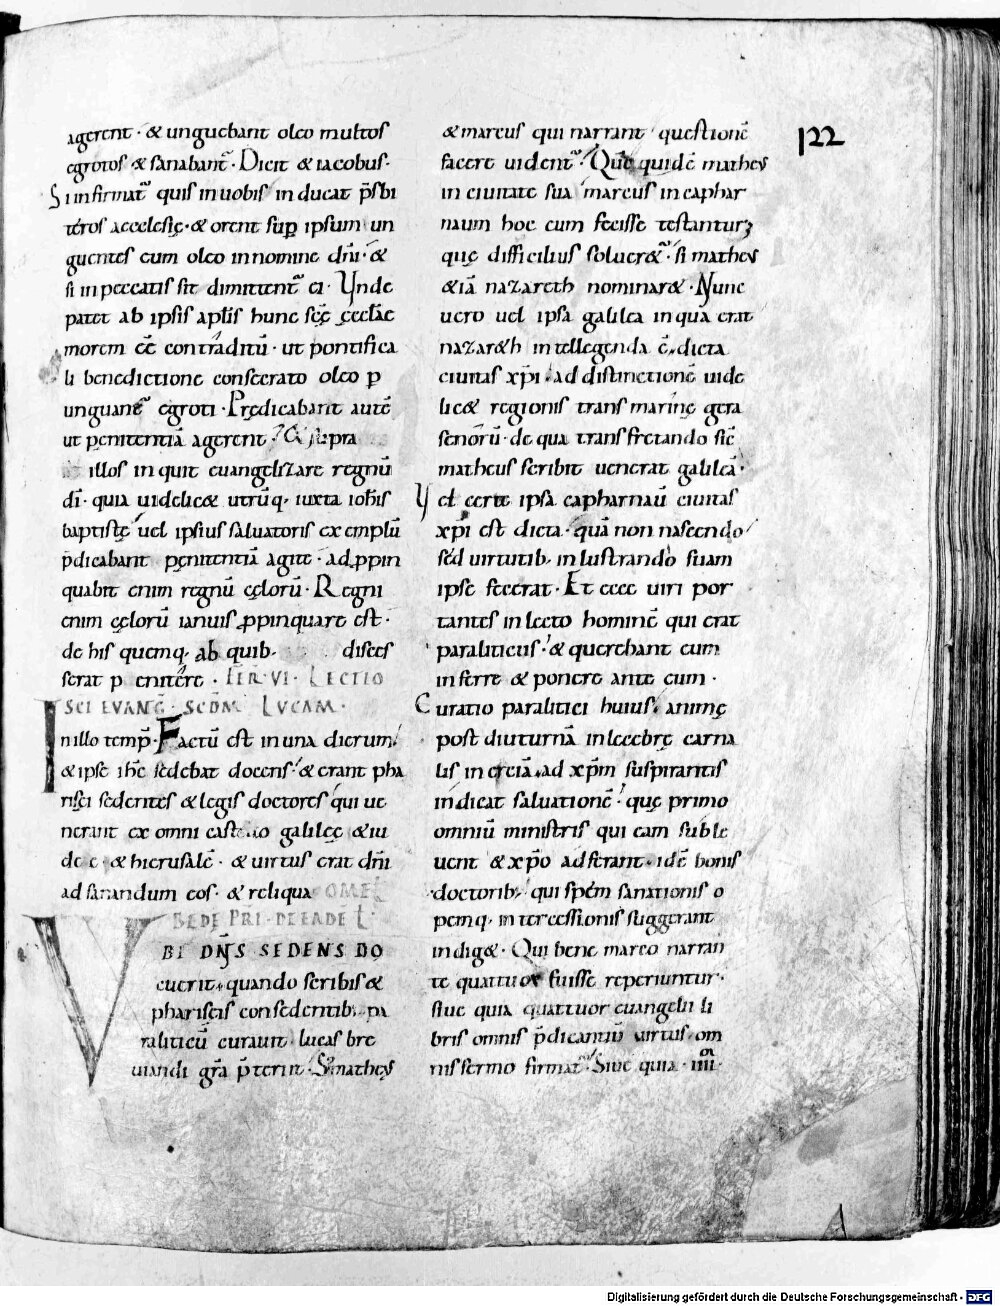 agerent · & unguebant oleo multos
egrotos & sanabant᷑ · Dicit & iacobus·
Si infirmat᷑ quis in uobis in ducat p̄sbi
téros aecclesię · & orent sup̱ ipsum un
guentes cum oleo in nomine dn̄i · &
si in peccatis sit dimittent᷑ ei · Vnde
patet ab ipsis apl̄is hunc sc̄ę ęccl̄ae
morem ēē contraditū · ut pontifica
li benedictione consecrato oleo p̱
unguant᷑ egroti · Prędicabant autē
ut pęnitentiā agerent · & supra
illos in quit euangelizare regnū
dī · quia uidelic& utrūq· iuxta ioh̄is
baptistę uel ipsius saluatoris exemplū
p̄dicabant pęnitentiā agite · ad ꝓpin
quabit enim regnū cęlorū · Regni
enim cęlorū ianuis ꝓpinquare est ·
de his quemq· ab quib· disces
serat penitére · FER · VI · LECTIO
SCI EVANG̅ · SCDM̅ LVCAM ·
In illo temp̄ · Factū est in una dierum
& ipse ih̄c sedebat docens · & erant pha
risęi sedentes & legis doctores qui ue
nerant ex omni castello galileę & iu
de & hierusalē · & uirtus erat dn̄i
ad sanandum eos · & reliqua OMEL
BEDE PRI · DE EADE L ·
VBI DN̄S SEDENS DO
cuerit · quando scribis &
phariseis con sedentib· pa
raliticū curauit · lucas bre
uiandi gr̄a p̄teriit · Sꝫ matheꝰ
& marcus qui narrant questionē
facere uident᷑ · Quę quidē matheꝰ
in ciuitate sua marcus in caphar
naum hoc eum fecisse testanturꝫ
quę difficilius soluer&᷑ · si matheꝰ
& iā nazareth nominar& · Nunc
uero uel ipsa galilea in qua erat
nazar&h intellegenda ē dicta
ciuitas xp̄i · ad distinctionē uide
lic& regionis trans marinę gera
senorū · de qua transfretando sic̄
matheus scribit uenerat galileā ·
Vel certe ipsa capharnaū ciuitas
xp̄i est dicta · quā non nascendo
sed uirtutib· in lustrando suam
ipse fecerat · Et ecce uiri por
tantes in lecto hominē qui erat
paraliticus · & querebant eum
in ferre & ponere ante eum ·
Curatio paralitici huius · animę
post diuturnā inlecebrę carna
lis in erciā · ad xp̄m suspirantis
indicat saluationē · quę primo
omniū ministris qui eam suble
uent & xp̄o adferant · idē bonis
doctorib· qui spem sanationis o
pemq· intercessionis suggerant
indig& · Qui bene marco narran
te quattuor fuisse reperiuntur ·
siue quia quattuor euangelii li
bris omnis p̄dicantiū uirtus · om
nis sermo firmat᷑ · Siue quia · iiii ·
122
Digitalisierung gefördert durch die Deutsche Forschungsgemeinschaft - DFG